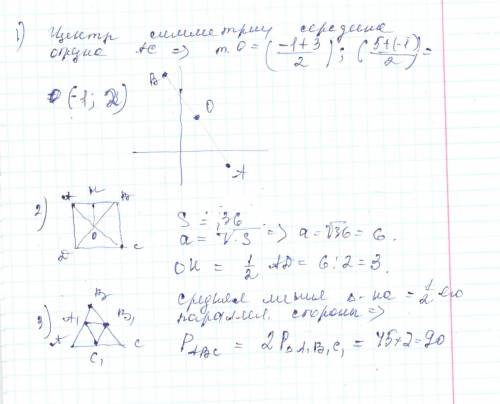 1) Центр симметрии середина
отрезка AC => т. O = (-1+3/2); (5+(-1)/2) =
O (-1; 2)
B
O
A
2) A K B
O
D C
S = 36
a = √S => a = √36 = 6.
OK = 1/2 AD = 6:2 = 3.
3) B
A₁ B₁
A C₁ C
средняя линия Δ-ка = 1/2 его
параллел. стороны =>
P ABC = 2P Δ A₁B₁C₁ = 45×2=90